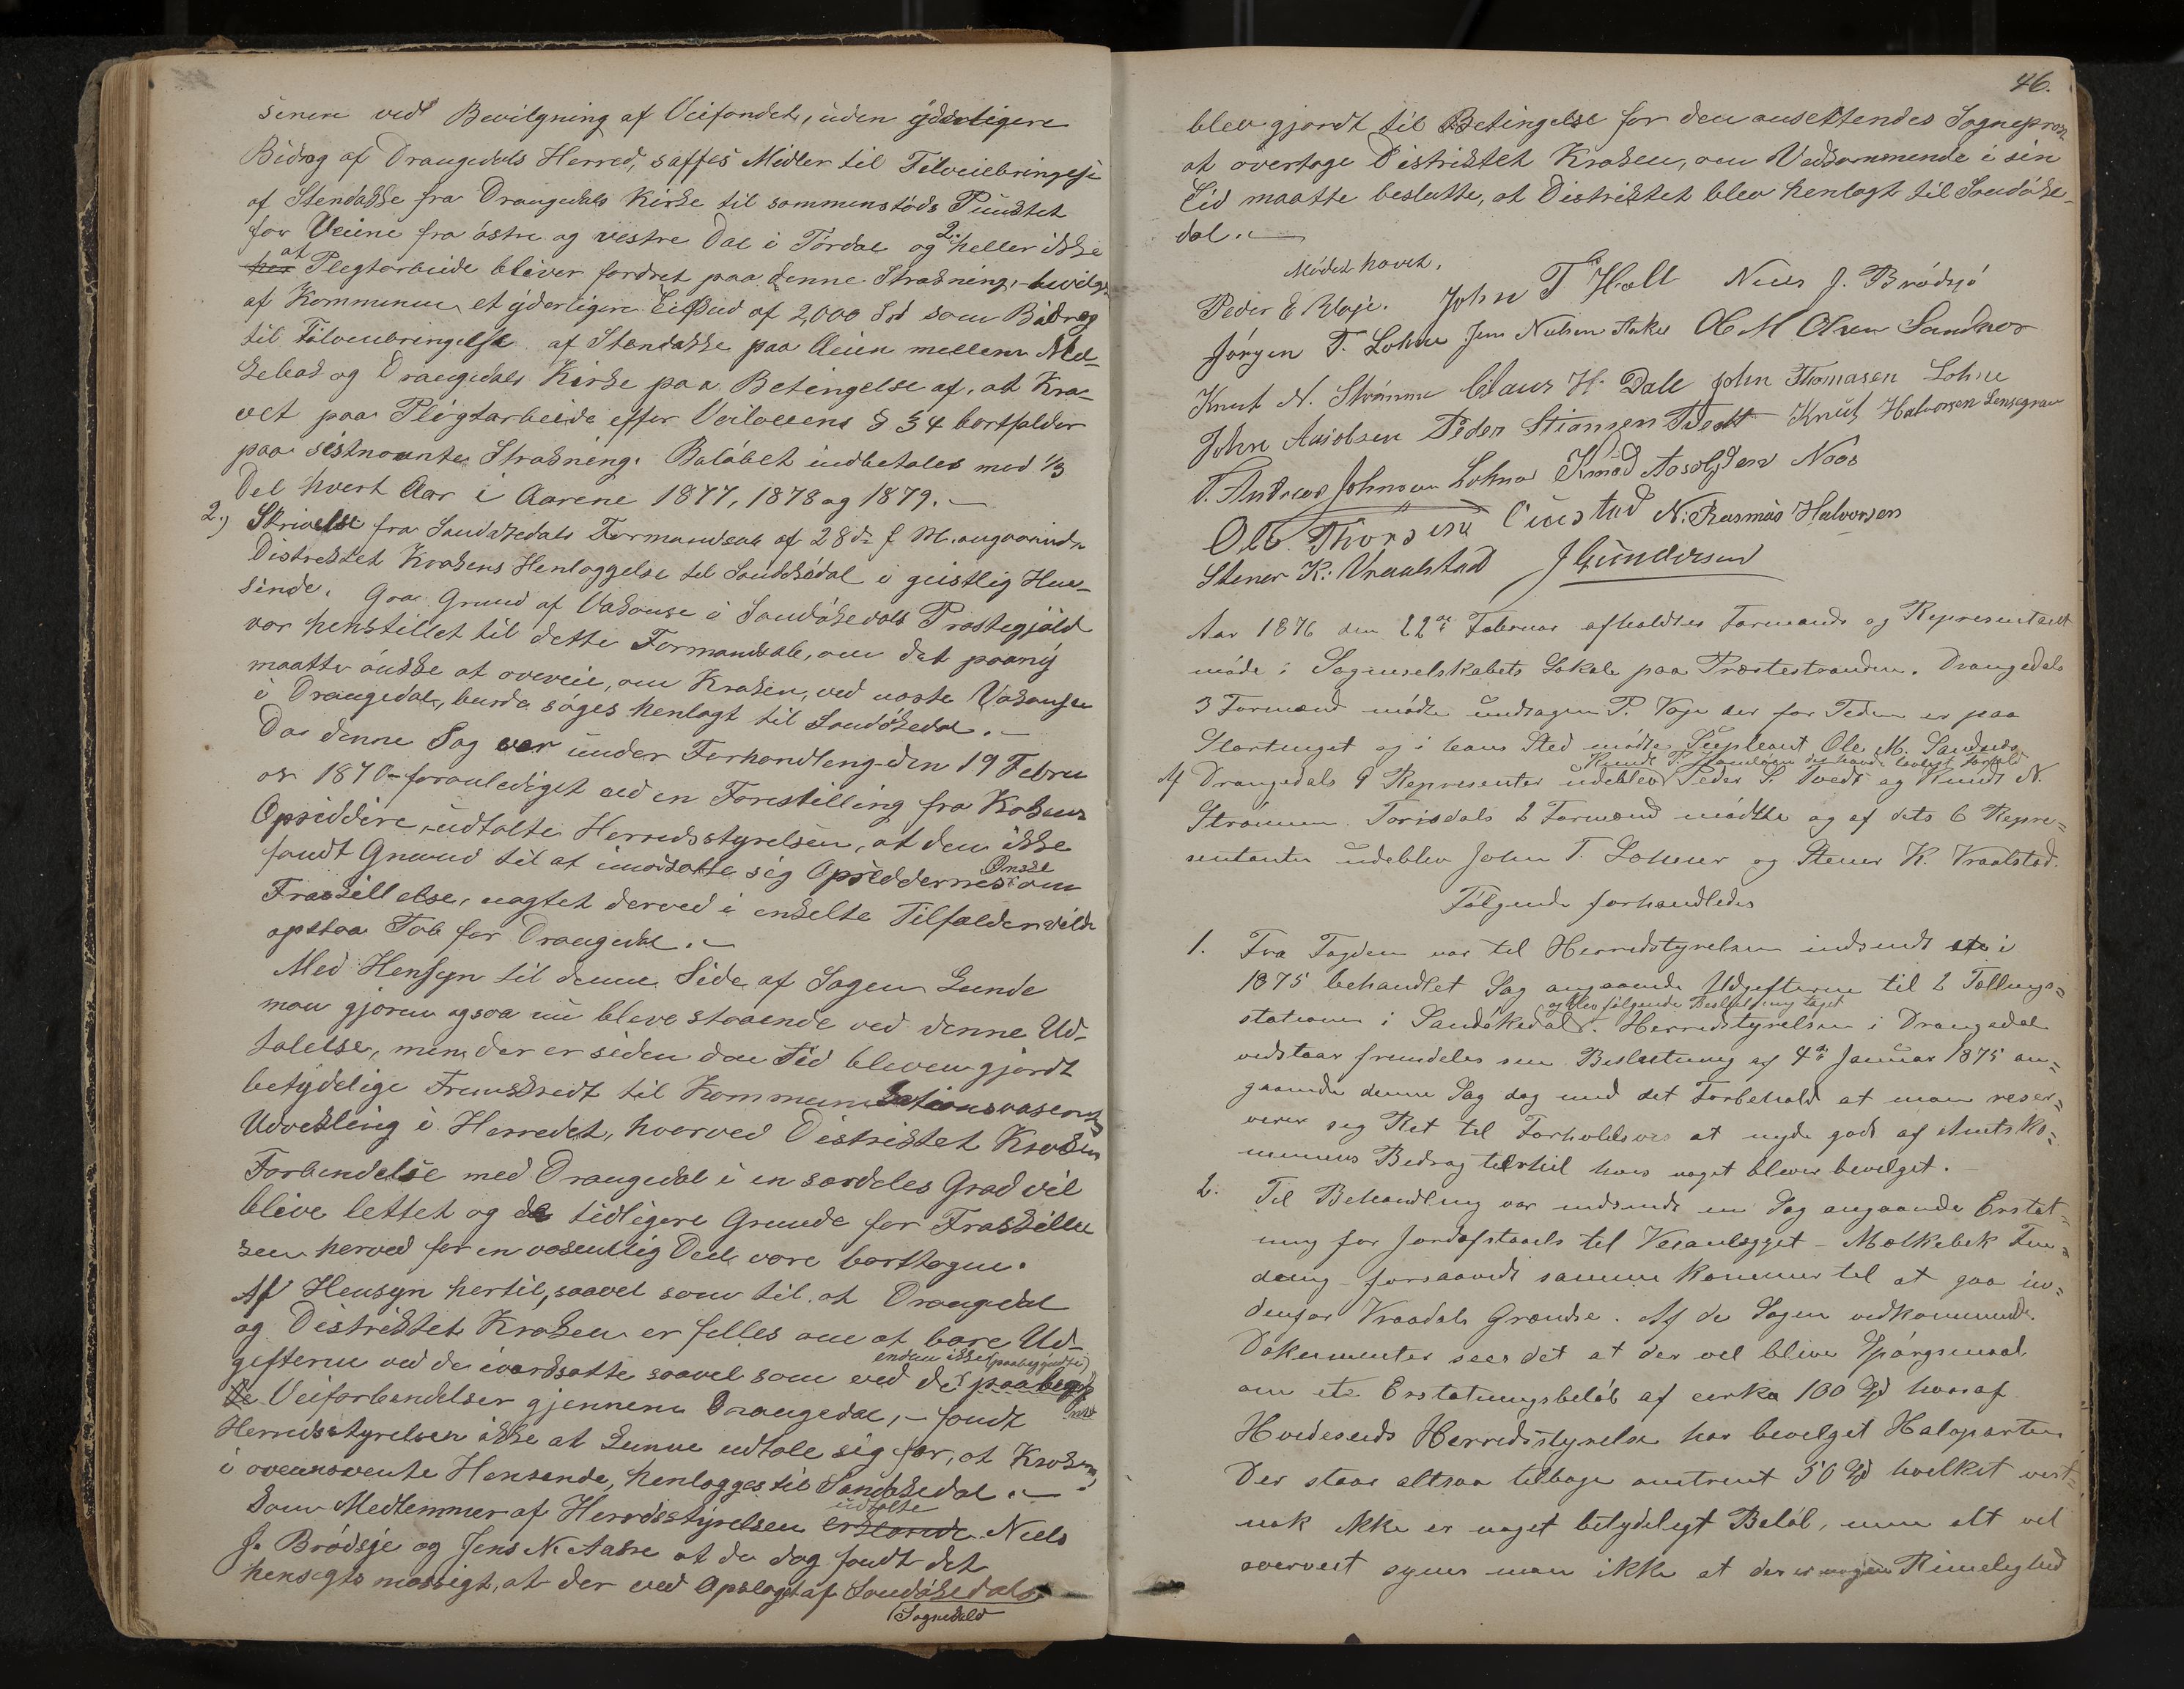 senere ved Bevilgning af Veifondet, uden yderligere
Bidrag af Drangedals Herred, saffes Midler til Tilveiebringelse
af Stendække fra Drangedals Kirke til sammenstøds Punktet
for Veiene fra østre og vestre Dal i Tørdal og 2. heller ikke
at Pligtarbeide bliver fordret paa denne Strækning, - bevilges
af Kommunen et yderligere Tilskud af 2,000 Spd som Bidrag
til Tilveiebringelse af Stendække paa Veien mellem Mel-
kebæk og Drangedals Kirke paa Betingelse af, at Kra-
vet paa Pligtarbeide efter Veilovens § 54 bortfalder
paa sistnævnte Strækning. Beløbet indbetales med 1/3
Del hvert Aar i Aarene 1877, 1878 og 1879. -
2.) Skrivelse fra Sandøkedals Formandskab af 28de f. M. angaaende
Distriktet Krokens Henlæggelse til Sandøkedal i geistlig Hen-
sende. Paa Grund af Vakanse i Sandøkedals Præstegjæld
var henstillet til dette Formandskab, om det paany
maatte ønske at overveie, om Kroken, ved næste Vakanse
i Drangedal, burde søges henlagt til Sandøkedal. -
Da denne Sag var under Forhandling den 19 Febru
ar 1870 - foranlediget ved en Forestilling fra Krokens
Opsiddere, udtalte Herredsstyrelsen, at den ikke
fandt Grund til at imodsætte sig Opsiddernes Ønske om
Fraskillelse, uagtet derved i enkelte Tilfælder vilde
opstaa Tab for Drangedal. -
Med Hensyn til denne Side af Sagen kunde
man gjerne ogsaa nu blive staaende ved denne Ud-
talelse, men der er siden den Tid bleven gjordt
betydelige Fremskridt til Kommunikationsvæsenets
Udvikling i Herredet, hvorved Distriktet Krokens
Forbindelse med Drangedal i en særdeles Grad vil
blive lettet og de tidligere Grunde for Fraskillel
sen herved for en væsentlig Deel være borttagne.
Af Hensyn hertil, saavel som til at Drangedal
og Distriktet Kroken er fælles om at bære Ud-
gifterne ved de iværksatte saavel som ved de endnu ikke (paabegyndte)
Veiforbindelser gjennem Drangedal, - fandt
Herredsstyrelsen ikke at kunne udtale sig for, at Kroken,
i ovennævnte Hensende, henlægges til Sandøkedal. -
Som Medlemmer af Herredsstyrelsen erklærede udtalte Niels
J. Brødsjø og Jens N. Aakre at de dog fandt det
hensigtsmæssigt, at der ved Opslaget af Sandøkedals
Sognekald
46.
blev gjordt til Betingelse for den ansettendes Sognepræst
at overtage Distriktet Kroken, om Vedkommende i sin
Tid maatte beslutte, at Distriktet blev henlagt til Sandøke-
dal. -
Mødet hævet.
Peder E Vaje. John T Holt Niels J. Brødsjø
Jørgen T. Lohne Jens Nielsen Aakre Ole M Olsen Sandnes
Knut N. Strømme Claus H. Dale John Thomasen Lohne
John Peder Stiansen Tvedt Knut Halvorsen
Andreas Johnsen Lohne Knud Aasolfsen Noos
Ole Thorsen N. Rasmus Halvorsen
Stener K. Vraalstad J Gundersen
Aar 1876 den 22de Februar afholdtes Formands og Representant
møde i Sogneselskabets Lokale paa Præstestranden. Drangedals
3 Formænd mødte undtagen P. Vaje der for Tiden er paa
Storthinget og i hans Sted mødte Supleant Ole M. Sandnes
Af Drangedals 9 Representer udeblev Peder S. Tvedt og Knudt N.
Strømme. Tørisdals 2 Formænd mødte og af dets 6 Repre-
sentanter udeblev John T. Lohne og Stener K. Vraalstad.
Følgende forhandledes
1. Fra Fogden var til Herredstyrelsen indsendt i
1875 behandlet Sag angaaende Udgifterne til 2 Tællings-
stationer i Sandøkedal og blev følgende Beslutning taget. Herredstyrelsen i Drangedal
vedstaar fremdeles sin Beslutning af 4de Januar 1875 an-
gaaende denne Sag dog med det Forbehold at man reser-
verer sig Ret til Forholdsvis at nyde godt af Amtsko-
mmunens Bidrag dertil hvis noget bliver bevilget. -
2. Til Behandling var indsendt en Sag angaaende Erstat-
ning for Jordafstaaels til Veianlægget - Mælkebek
forsaavidt samme kommer til at gaa in-
denfor Vraadals Grændse. Af de Sagen vedkommende
Dokumenter sees det at der vel blive Spørgsmaal
om et Erstatningsbeløb af cirka 100 Spd hvoraf
Hvideseids Herredsstyrelse har bevilget Halvparten
Der staar altsaa tilbage omtrent 50 Spd hvilket vist-
nok ikke er noget betydeligt Beløb, men alt vel
overveit synes man ikke at der er nogen Rimelighed